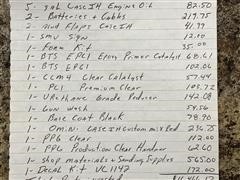 5- gal Case IH Engine Oil 82.50
2- Batteries + Cables 219.75
2- Mud Flaps Case IH 41.99
1- SMV Sign 12.00
1- Foam Kit 35.00
1- BTS EPCL Epoxy Primer Catalyst 68.61
1- BTS EPCL
1- CCM4 Clear Catalyst 57.44
1- PCL Premium Clear
1- Urethane Grade Reducer 142.08
1- Gun Wash 54.56
1- Base Coat Black 78.90
1- Omni Case IH Custom mix Red 236.75
1- PPG Clear 142.00
1- PPG Production Clear Hardner 62.60
1- Shop materials + Sanding Supplies 565.00
1- Decal Kit VL1142 172.00